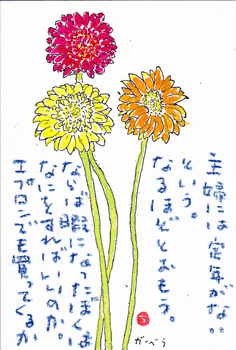 主婦には定年がない
という。
なるほどとおもう。
ならば暇になったぼくは
なにをすればいいのか。
エプロンでも買ってくるか
がーべら